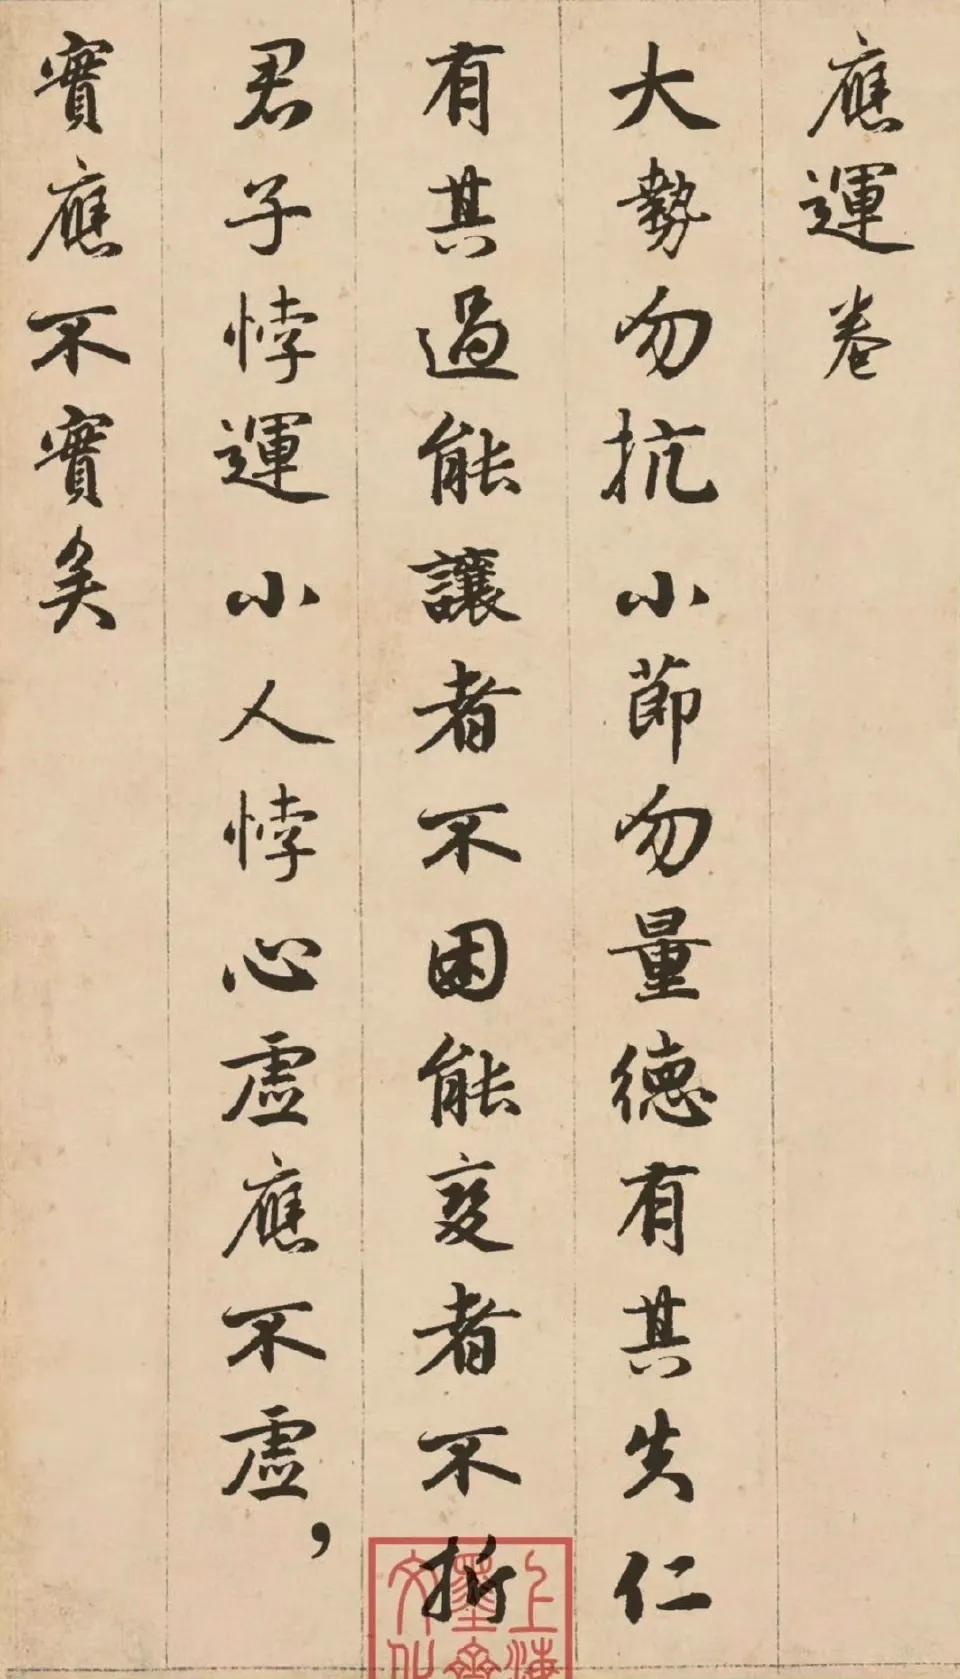 應運卷
大勢勿抗小節勿量德有其失仁
有其過能讓者不困能變者不折
君子悖運小人悖心虛應不虛，
實應不實矣
上海
墨齋
文化